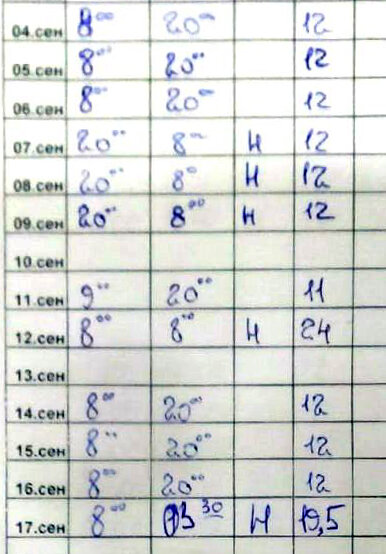 04.сен 8⁰⁰ 20⁰⁰ 12
05.сен 8⁰⁰ 20⁰⁰ 12
06.сен 8⁰⁰ 20⁰⁰ 12
07.сен 20⁰⁰ 8⁰⁰ Н 12
08.сен 20⁰⁰ 8⁰⁰ Н 12
09.сен 20⁰⁰ 8⁰⁰ Н 12
10.сен
11.сен 9⁰⁰ 20⁰⁰ 11
12.сен 8⁰⁰ 8⁰⁰ Н 24
13.сен
14.сен 8⁰⁰ 20⁰⁰ 12
15.сен 8⁰⁰ 20⁰⁰ 12
16.сен 8⁰⁰ 20⁰⁰ 12
17.сен 8⁰⁰ 03³⁰ Н 19,5